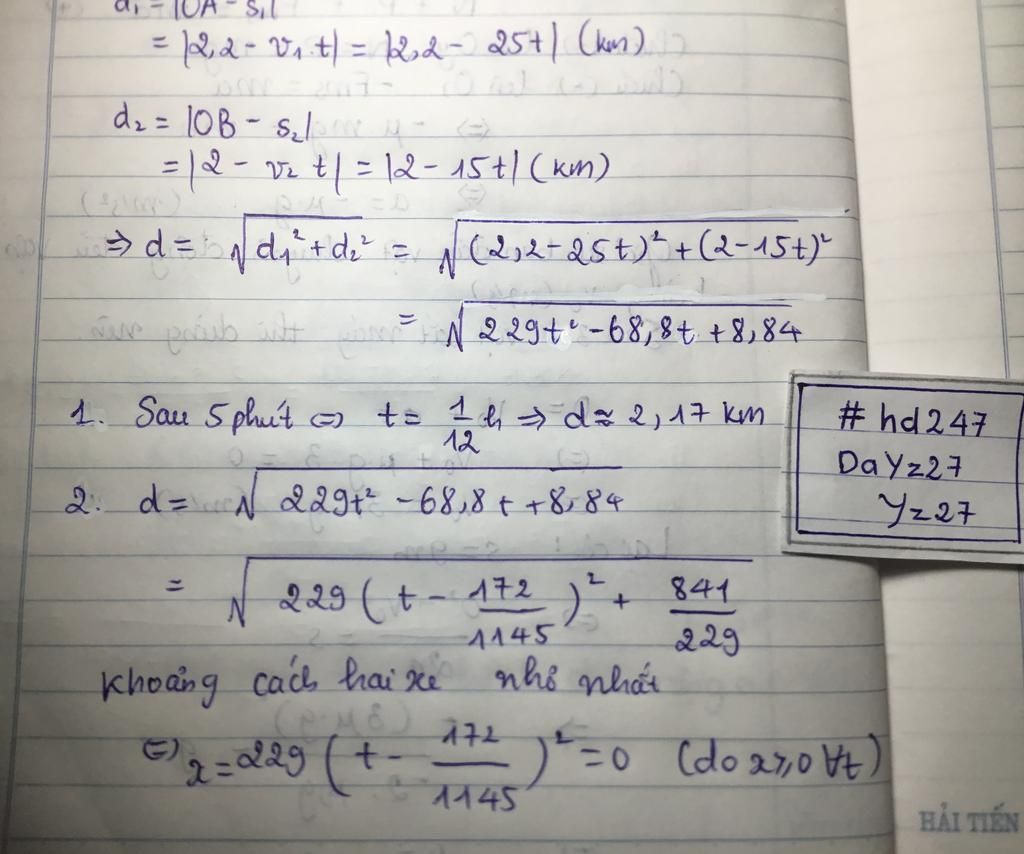 d₁ = |OA - s₁|
= |2,2 - v₁ t| = |2,2 - 25t| (km)
d₂ = |OB - s₂|
= |2 - v₂ t| = |2 - 15t| (km)
⇒ d = √(d₁² + d₂²) = √((2,2 - 25t)² + (2 - 15t)²)
= √(229t² - 68,8t + 8,84)
1. Sau 5 phút ⇔ t = 1/12 h ⇒ d ≈ 2,17 km
2. d = √(229t² - 68,8t + 8,84)
= √(229(t - 172/1145)² + 841/229)
Khoảng cách hai xe nhỏ nhất
⇔ x = 229(t - 172/1145)² = 0 (do x ≥ 0 ∀t)
# hd247
DaYz27
Yz27
HẢI TIẾN